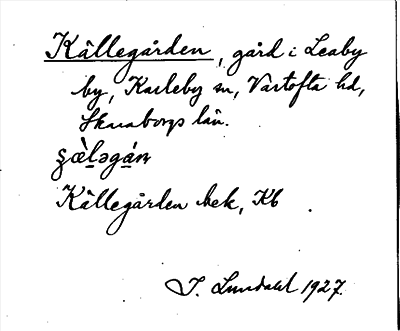 Källegården, gård i Leaby
by, Karleby sn, Vartofta hd,
Skaraborgs län.
Källegården bek, Kb
J. Lundahl 1927.